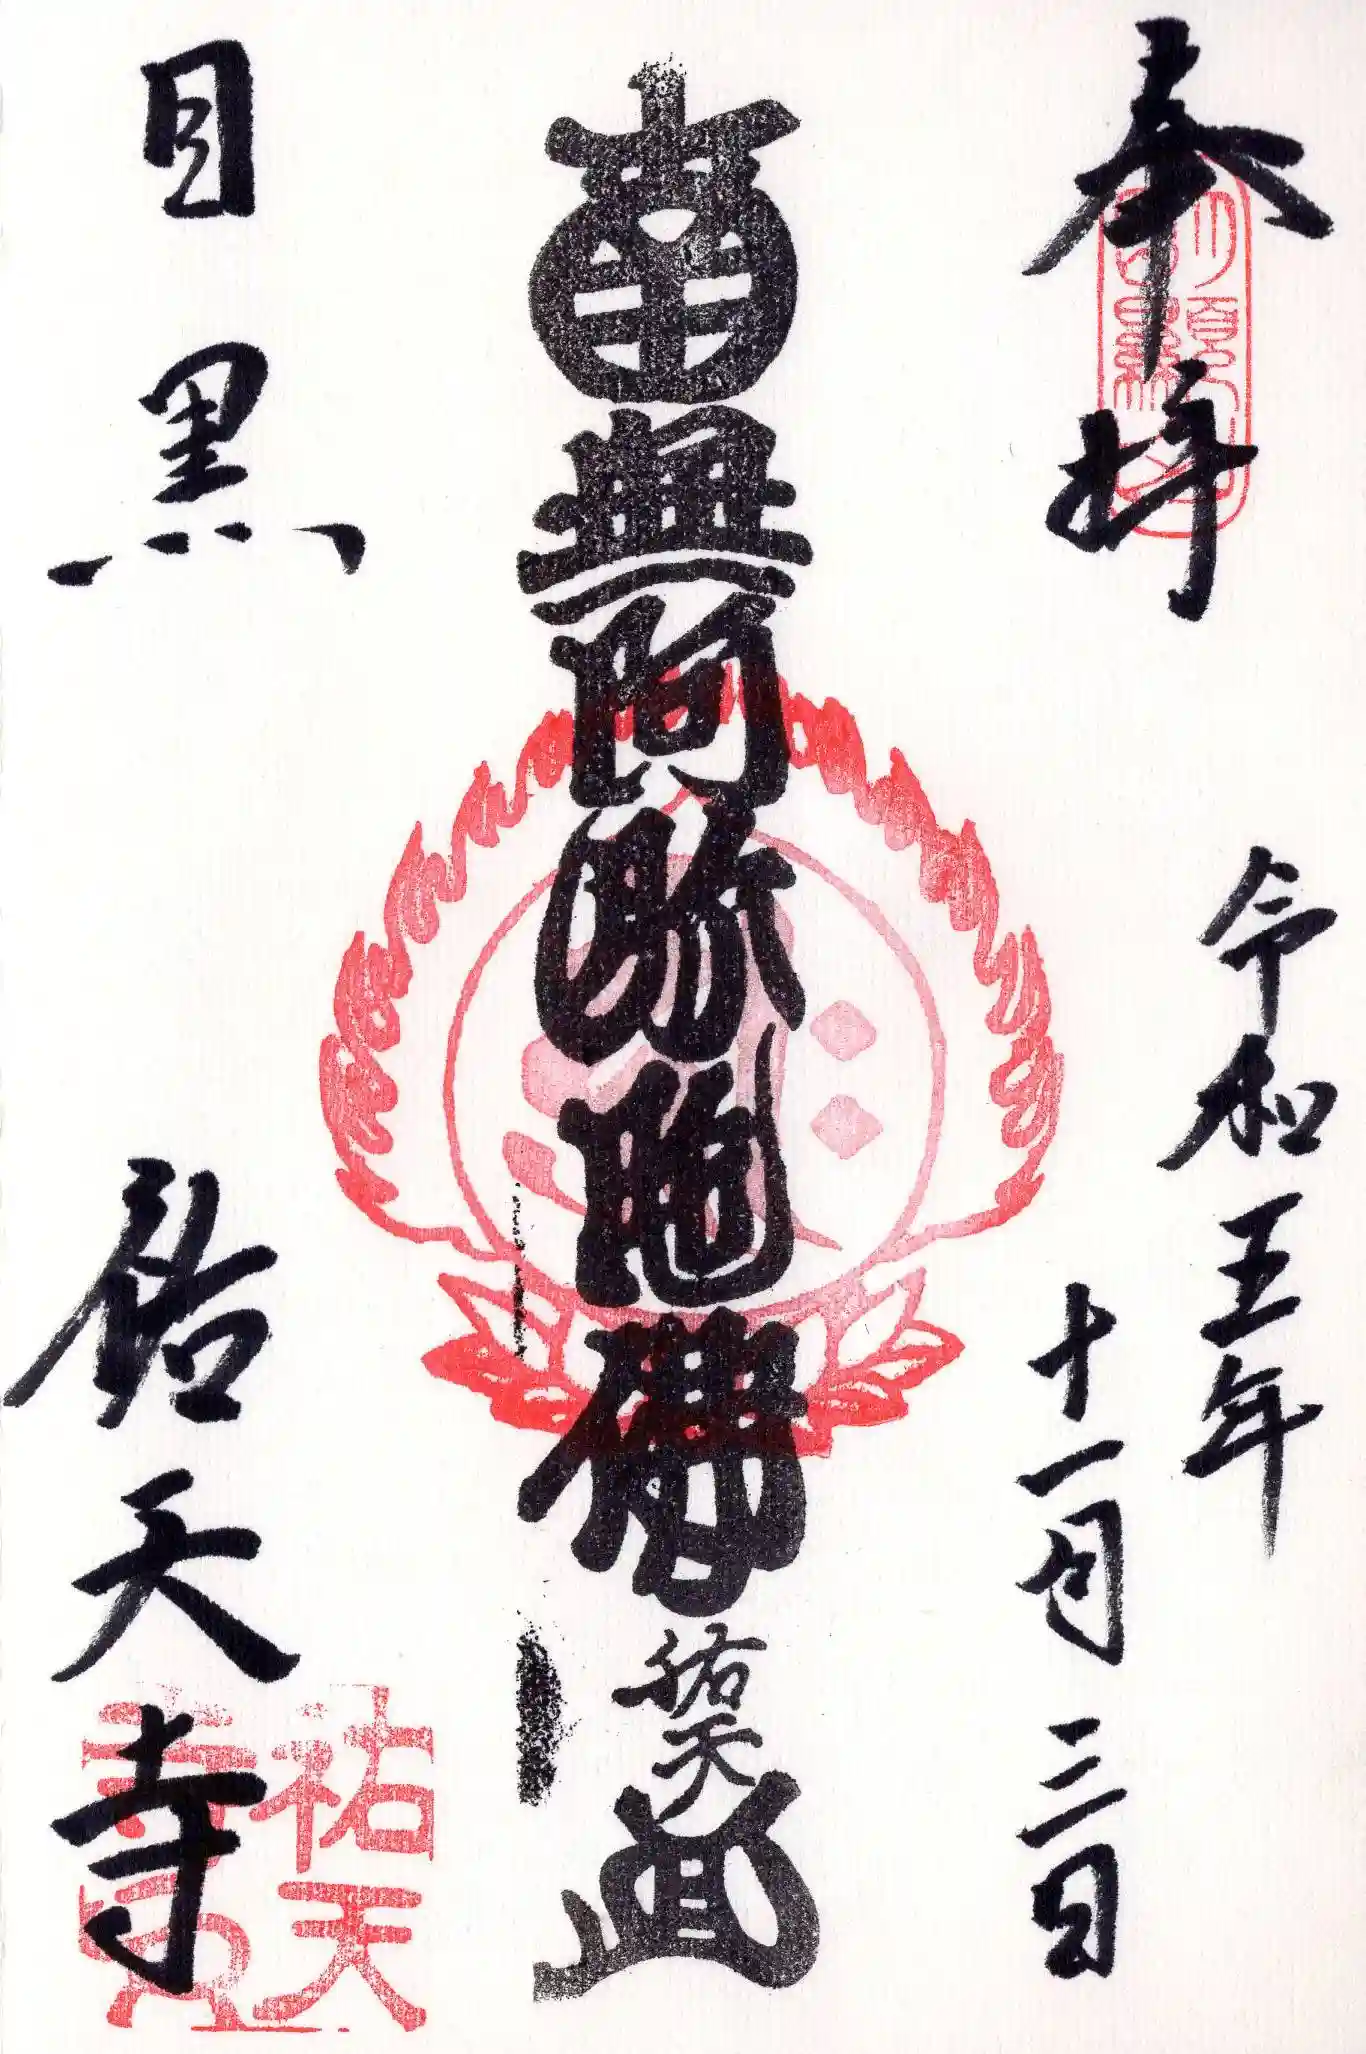 奉拝
令和五年
十一月三日
南無阿弥陀佛
祐天
目黒
祐天寺
祐天
寺印